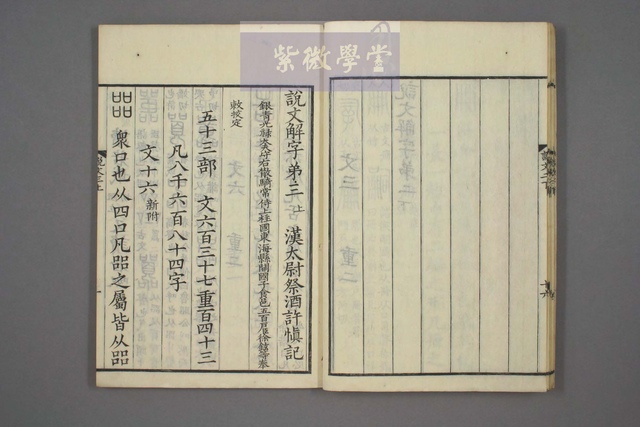 紫微學堂
說文解字弟三上 漢太尉祭酒許慎記
銀青光祿大夫守右散騎常侍上柱國東海縣開國子食邑五百戶臣徐鉉等奉
敕校定
五十三部 文六百三十七重百四十三
凡八千六百八十四字
文十六新附
㗊 衆口也从四口凡㗊之屬皆从㗊